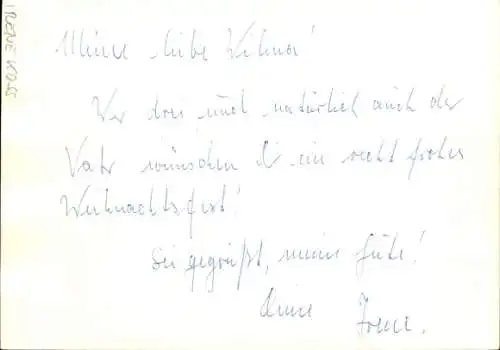 IRENE KOSS
Meine liebe Wilma!
Wir drei und natürlich auch der
Vater wünschen Dir ein recht frohes
Weihnachtsfest!
Sei gegrüßt, meine Gute!
Deine Irene.